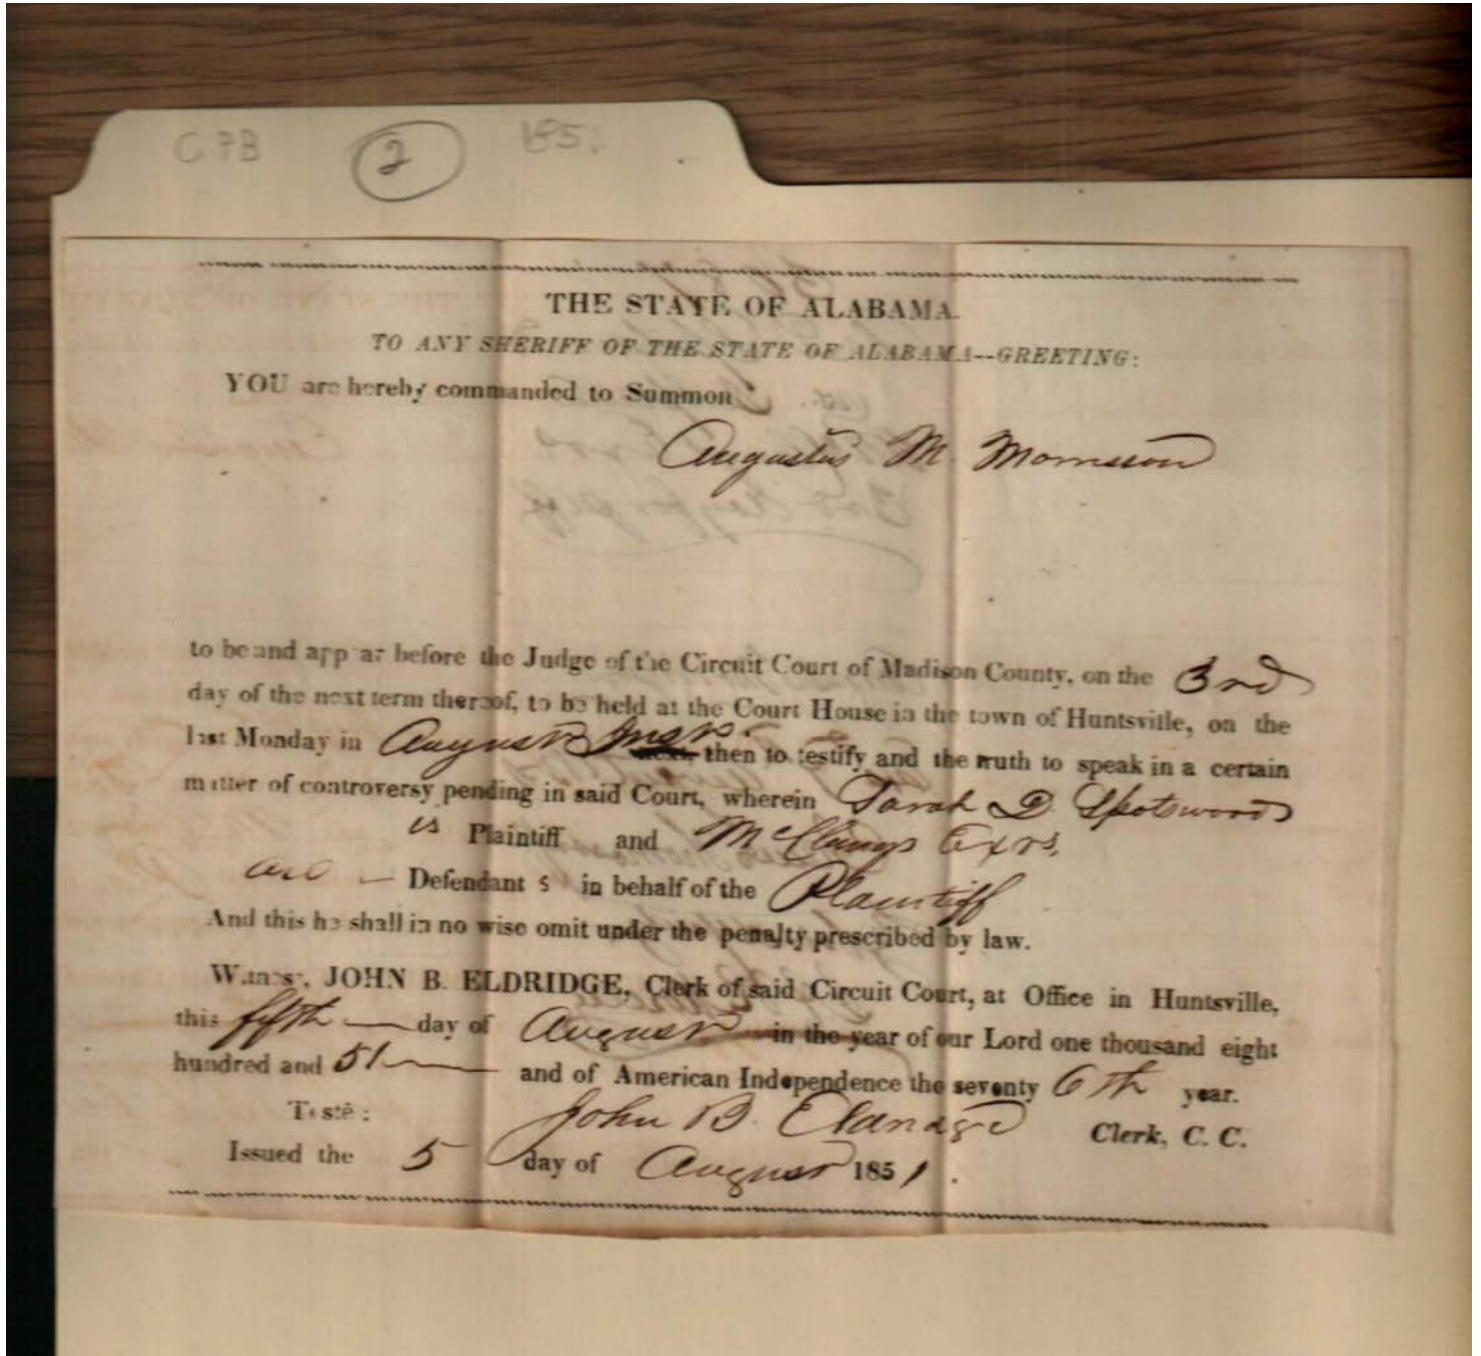 CPB 2 185
THE STATE OF ALABAMA.
TO ANY SHERIFF OF THE STATE OF ALABAMA--GREETING:
YOU are hereby commanded to Summon
Augustus M. Morrison
to be and appear before the Judge of the Circuit Court of Madison County, on the 3rd
day of the next term thereof, to be held at the Court House in the town of Huntsville, on the
last Monday in August Inst. next, then to testify and the truth to speak in a certain
matter of controversy pending in said Court, wherein Sarah D. Spotswood
is Plaintiff and McClungs Exrs.
are — Defendant s in behalf of the Plaintiff
And this he shall in no wise omit under the penalty prescribed by law.
Witness, JOHN B. ELDRIDGE, Clerk of said Circuit Court, at Office in Huntsville,
this fifth — day of August in the year of our Lord one thousand eight
hundred and 51 — and of American Independence the seventy 6th year.
Teste: John B. Eldridge Clerk, C. C.
Issued the 5 day of August 1851.